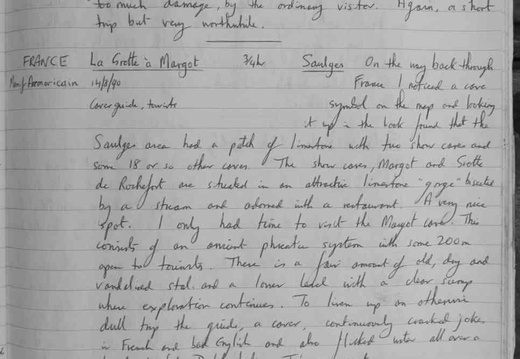 too much damage, by the ordinary visitor. Again, a short
trip but very worthwhile.
FRANCE La Grotte à Margot 3/4hr Saulges On the way back through
Massif Armoricain 14/8/90 France I noticed a cave
Cave guide, tourists symbol on the map and looking
it up in the book found that the
Saulges area had a patch of limestone with two show caves and
some 18 or so other caves. The show caves, Margot and Grotte
de Rochefort are situated in an attractive limestone "gorge" bisected
by a stream and adorned with a restaurant. A very nice
spot. I only had time to visit the Margot cave. This
consists of an ancient phreatic system with some 200m
open to tourists. There is a fair amount of old, dry and
vandalised stal. and a lower level with a clear sump
where exploration continues. To liven up an otherwise
dull trip the guide, a caver, continuously cracked jokes
in French and bad English and also flicked water all over a